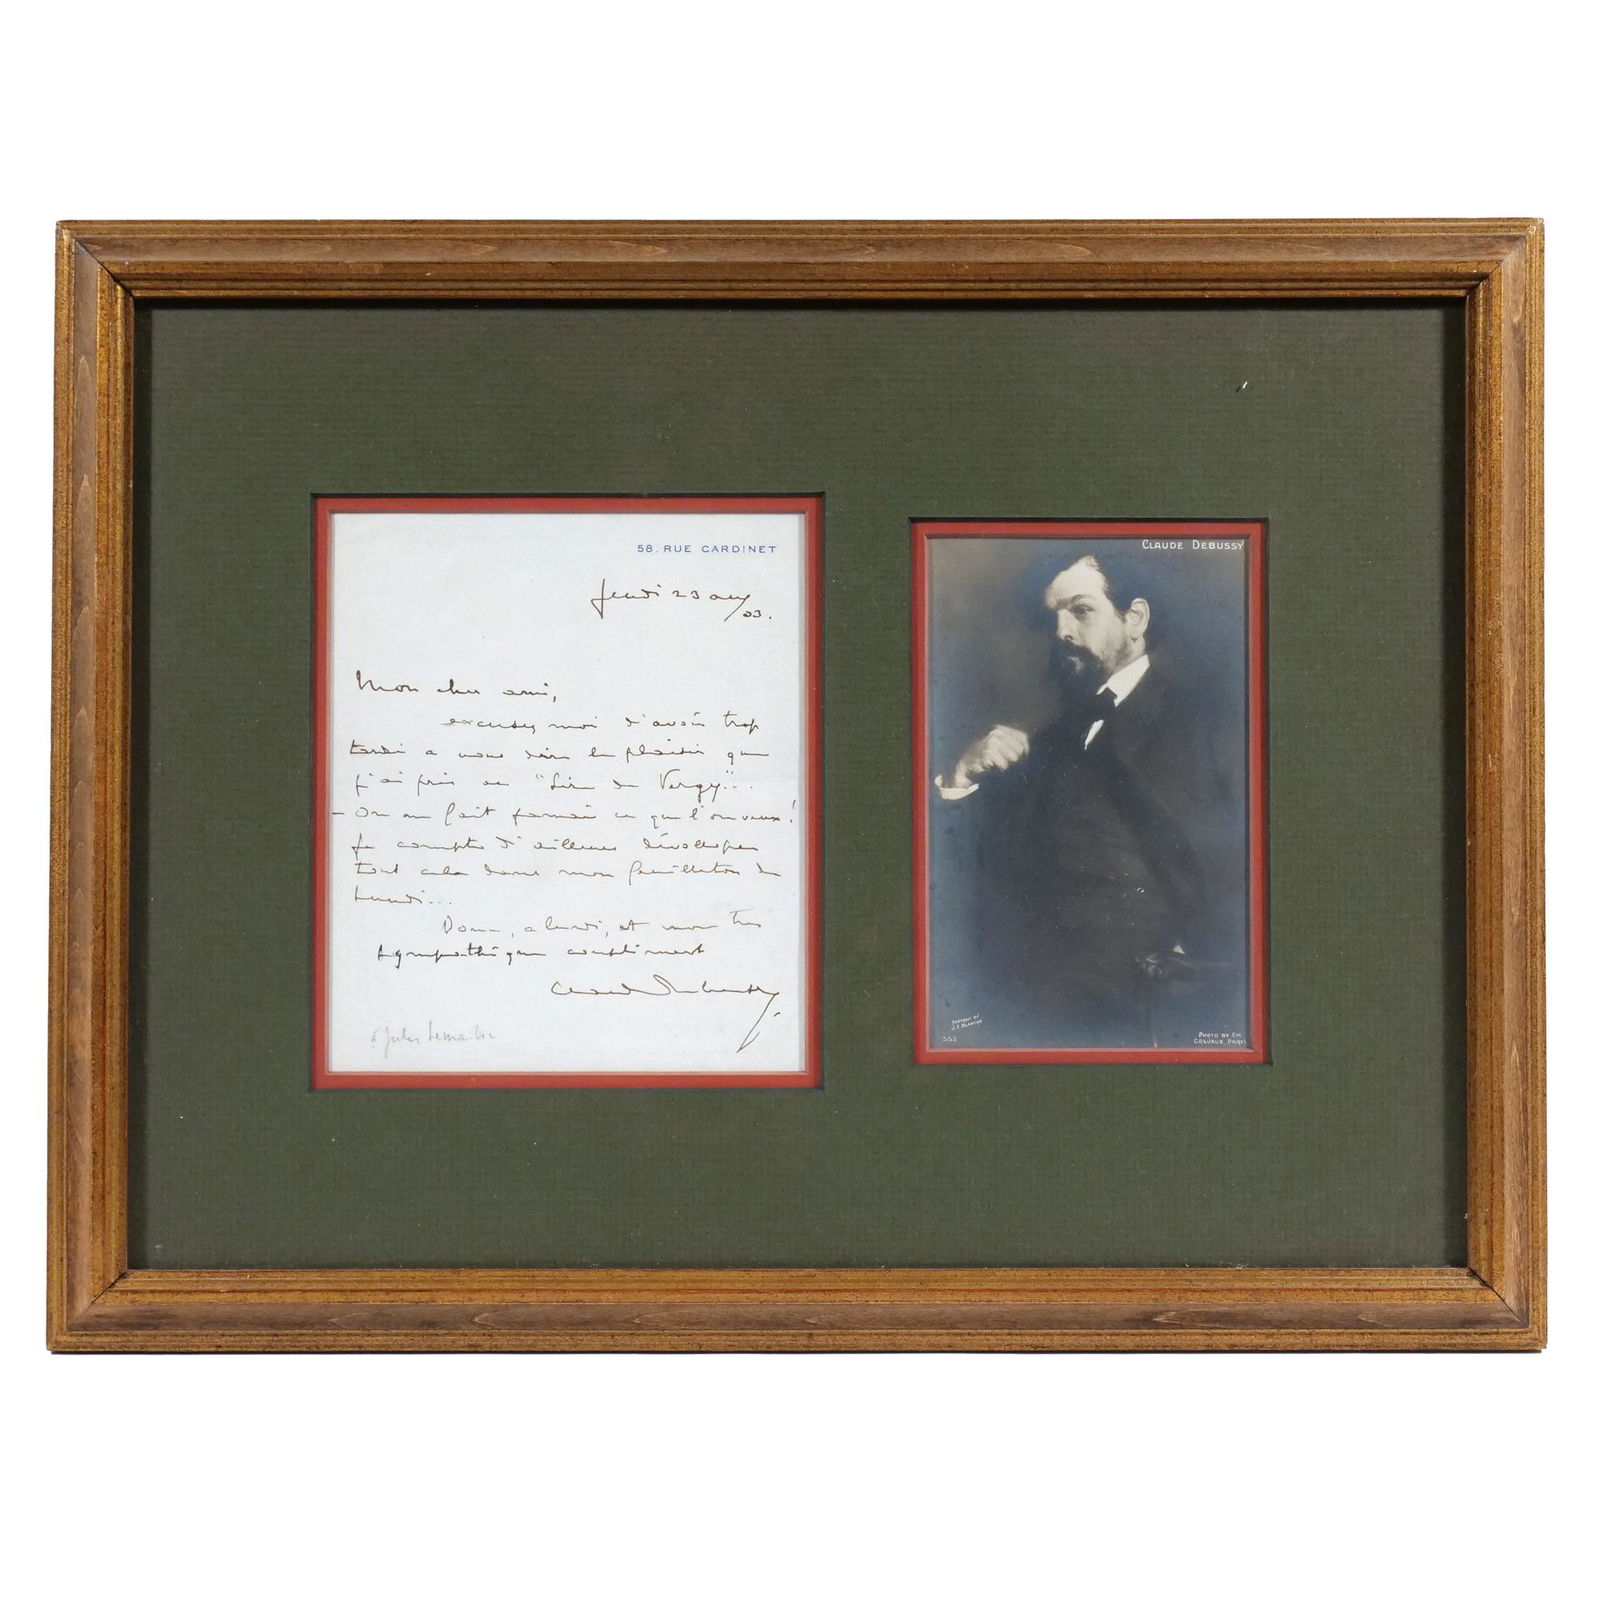 58. RUE CARDINET
Jeudi 23 avr/03.
Mon cher ami,
excusez moi d'avoir trop
tardé a vous dire le plaisir que
j'ai pris au "Sire de Vergy"...
- On ne fait jamais ce que l'on veux!
Je compte d'ailleurs développer
tout cela dans mon feuilleton de
Lundi...
Donc, a lundi, et mon très
sympathique compliment
Claude Debussy
à Jules Lemaitre
CLAUDE DEBUSSY
PORTRAIT BY
J. E. BLANCHE
552
PHOTO BY EM.
CREVAUX, PARIS